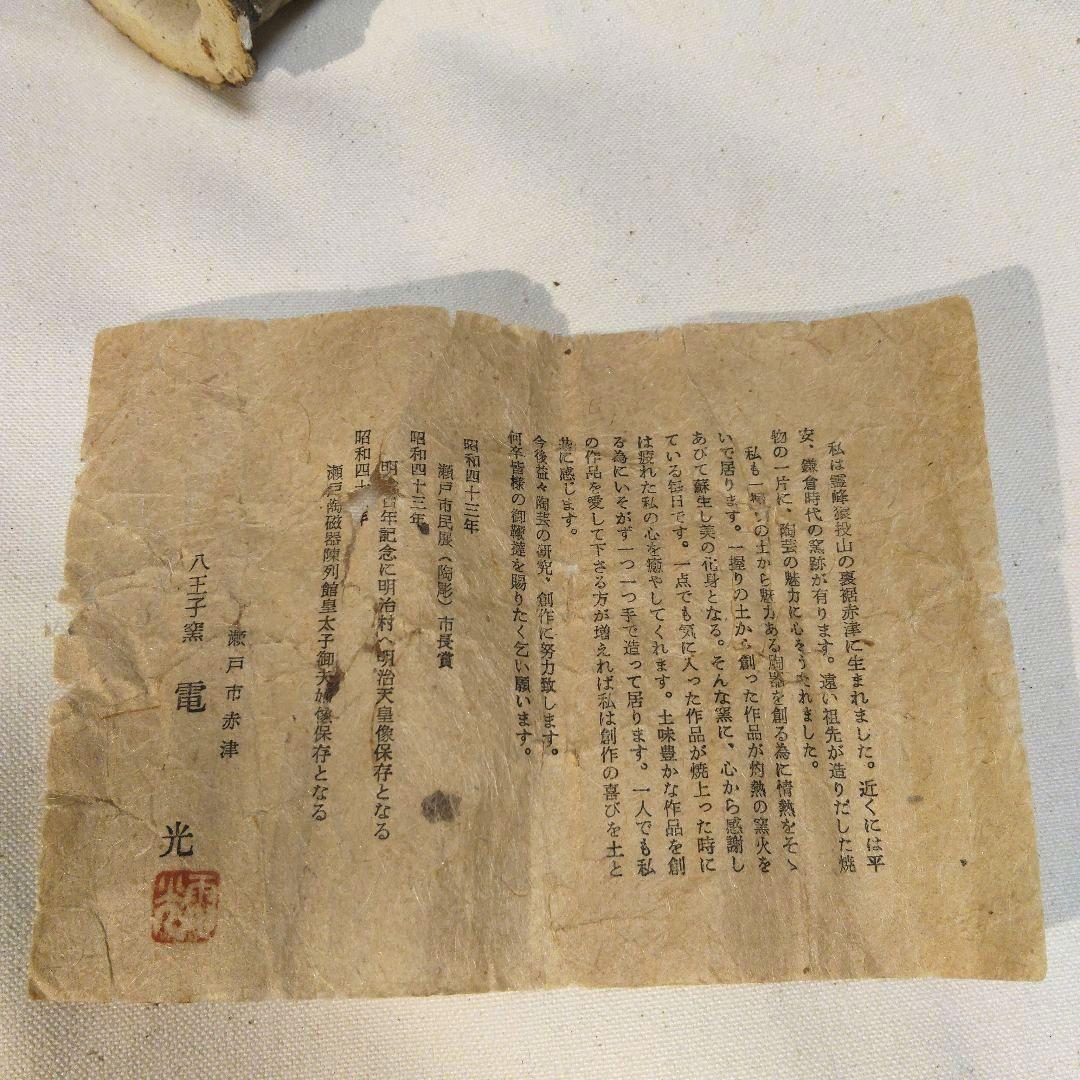 私は霊峰猿投山の裏裾赤津に生まれました。近くには平
安、鎌倉時代の窯跡が有ります。遠い祖先が造りだした焼
物の一片に、陶芸の魅力に心をうたれました。
私も一握りの土から魅力ある陶器を創る為に情熱をそゝ
いで居ります。一握りの土から創った作品が灼熱の窯火を
あびて蘇生し美の化身となる。そんな窯に、心から感謝し
ている毎日です。一点でも気に入った作品が焼上った時に
は疲れた私の心を癒やしてくれます。土味豊かな作品を創
る為にいそがず一つ一つ手で造って居ります。一人でも私
の作品を愛して下さる方が増えれば私は創作の喜びを土と
共に感じます。
今後益々陶芸の研究、創作に努力致します。
何卒皆様の御鞭撻を賜りたく乞い願います。
昭和四十三年
瀬戸市民展(陶彫)市長賞
昭和四十三年
明治百年記念に明治村へ明治天皇像保存となる
昭和四十年
瀬戸陶磁器陳列館皇太子御夫婦像保存となる
瀬戸市赤津
八王子窯 電光